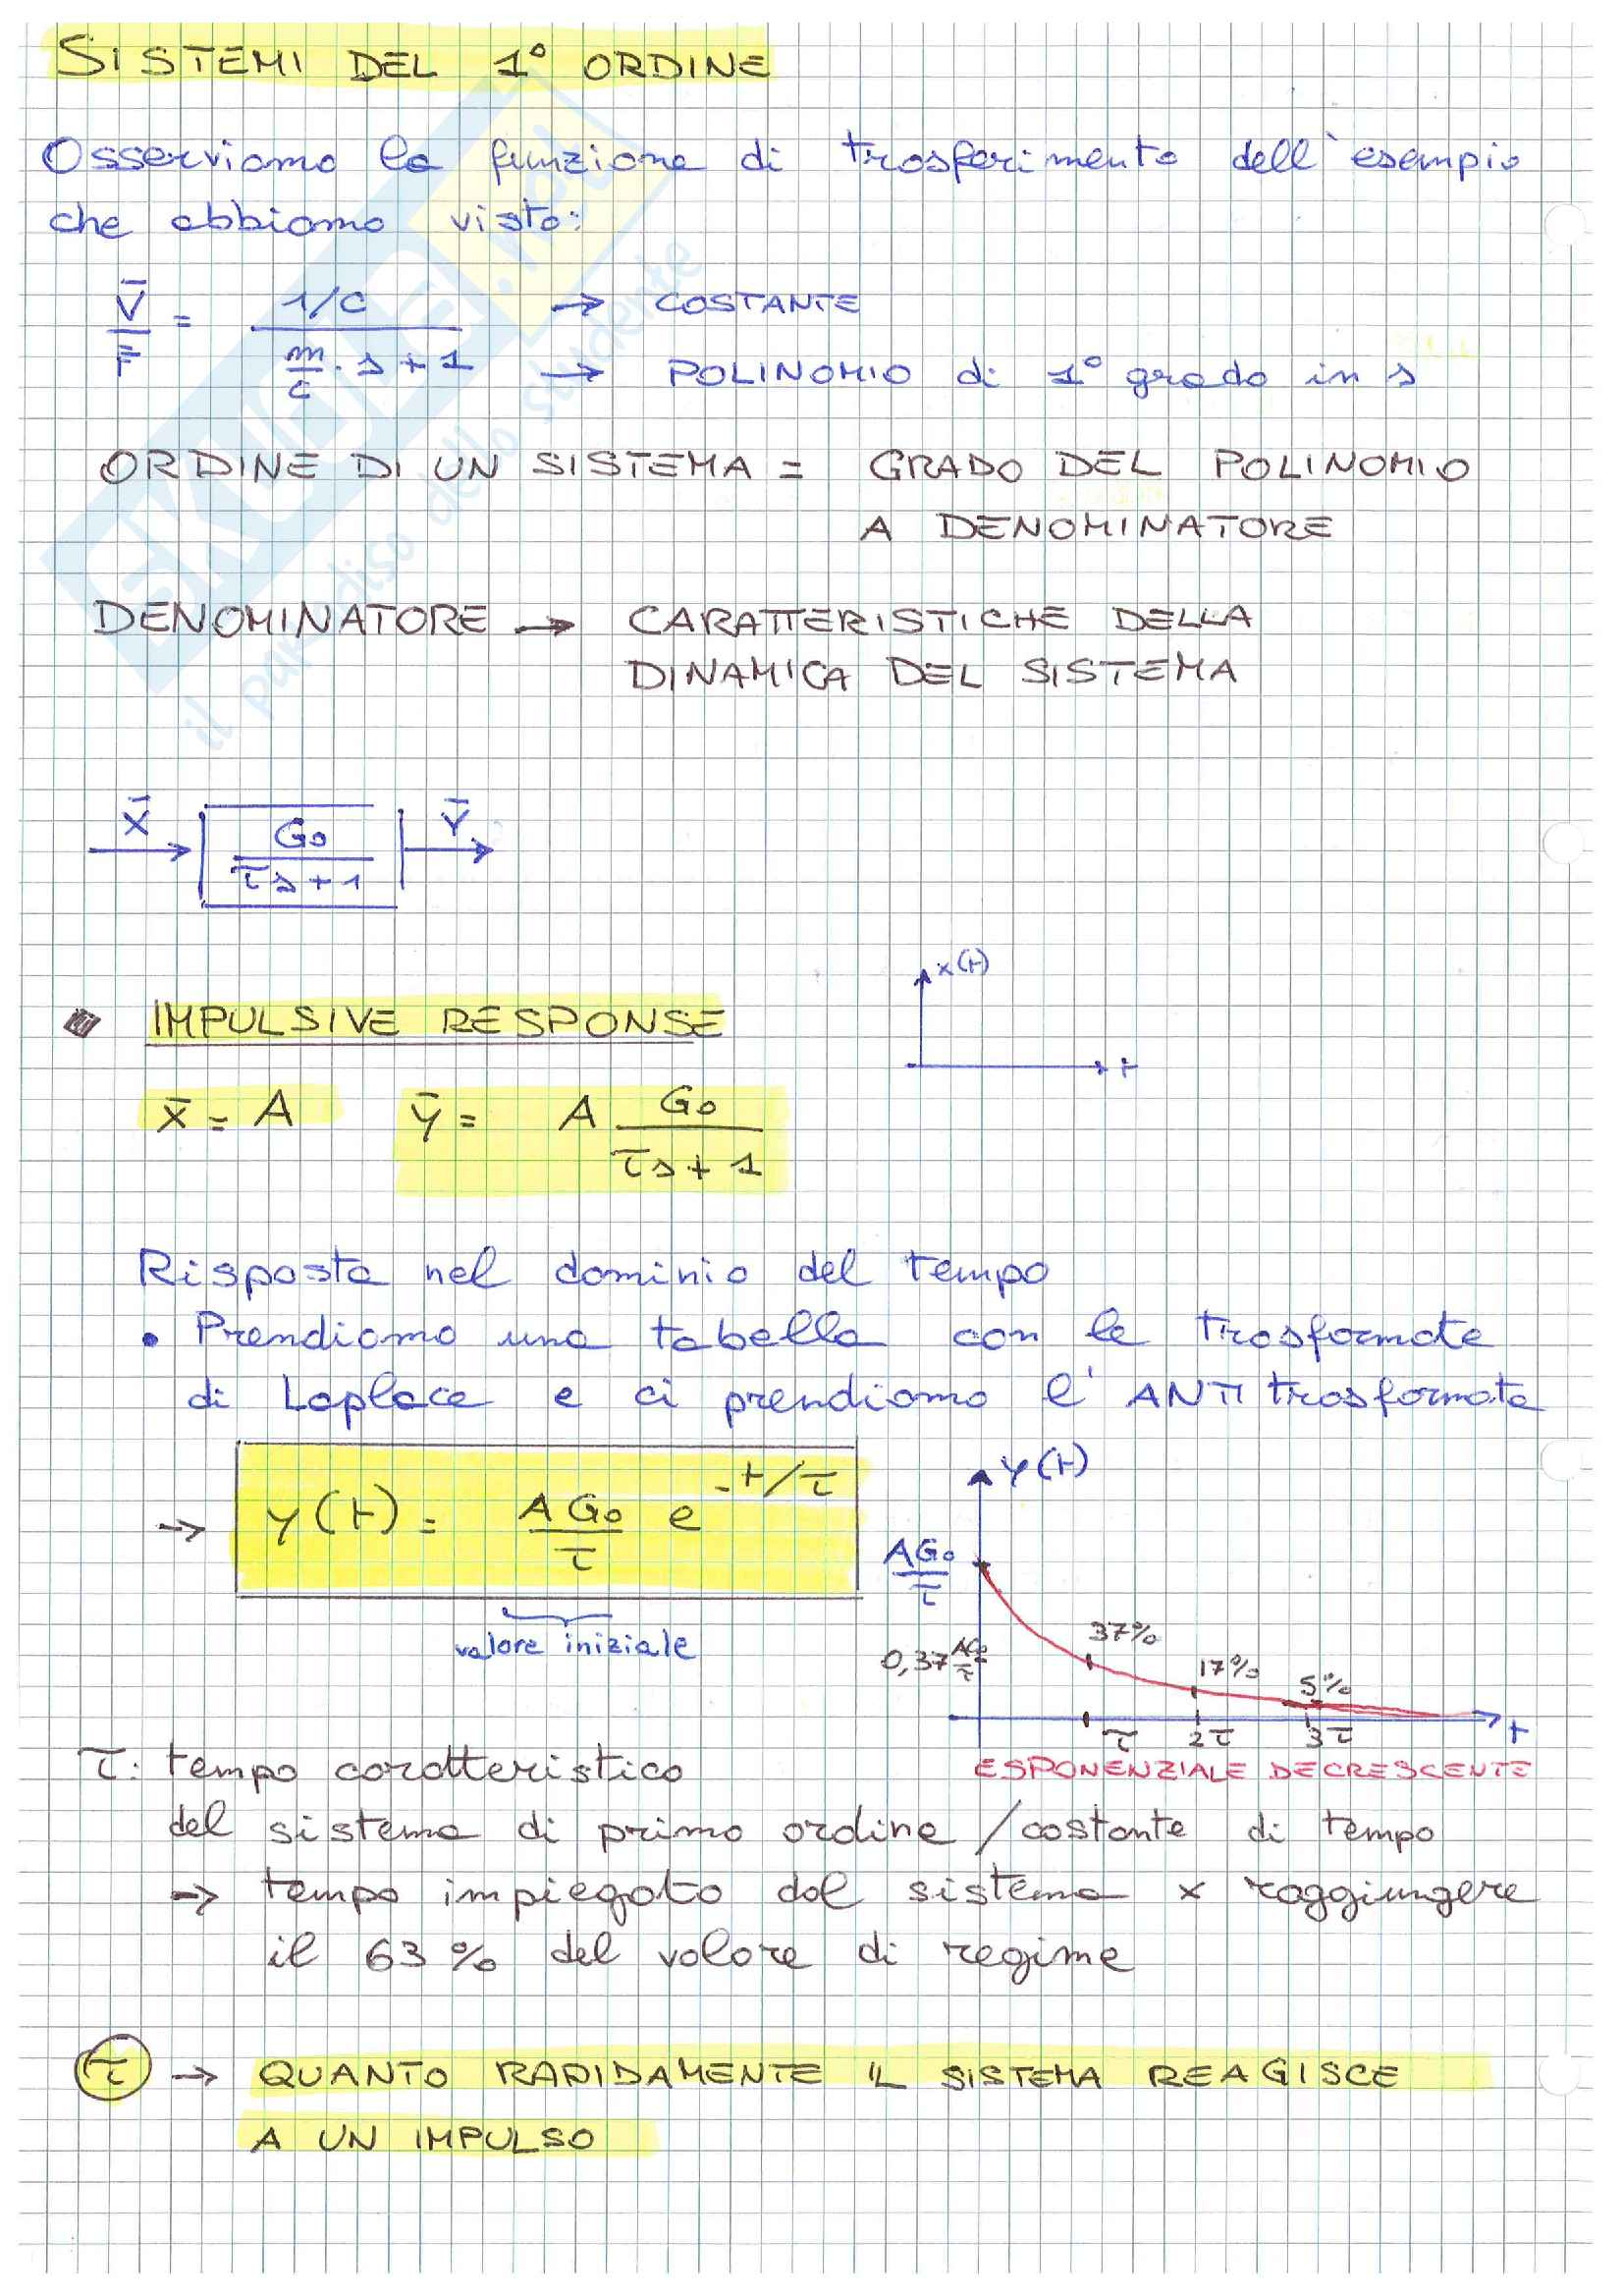 SISTEMI DEL 1° ORDINE
Osserviamo la funzione di trasferimento dell'esempio
che abbiamo visto:
V̄/F̄ = (1/c)/(m/c · s + 1)
→ COSTANTE
→ POLINOMIO di 1° grado in s
ORDINE DI UN SISTEMA = GRADO DEL POLINOMIO
A DENOMINATORE
DENOMINATORE → CARATTERISTICHE DELLA
DINAMICA DEL SISTEMA
X̄ G₀/(τs+1) Ȳ
x(t)
t
IMPULSIVE RESPONSE
x̄ = A ȳ = A G₀/(τs+1)
Risposta nel dominio del tempo
• Prendiamo una tabella con le trasformate
di Laplace e ci prendiamo l'ANTItrasformata
→ y(t) = AG₀/τ e^(-t/τ)
valore iniziale
y(t)
AG₀/τ
0,37 AG₀/τ
37%
17%
5%
τ 2τ 3τ t
ESPONENZIALE DECRESCENTE
τ: tempo caratteristico
del sistema di primo ordine / costante di tempo
→ tempo impiegato dal sistema x raggiungere
il 63% del valore di regime
τ → QUANTO RAPIDAMENTE IL SISTEMA REAGISCE
A UN IMPULSO
SKUOLA.net
il paradiso dello studente